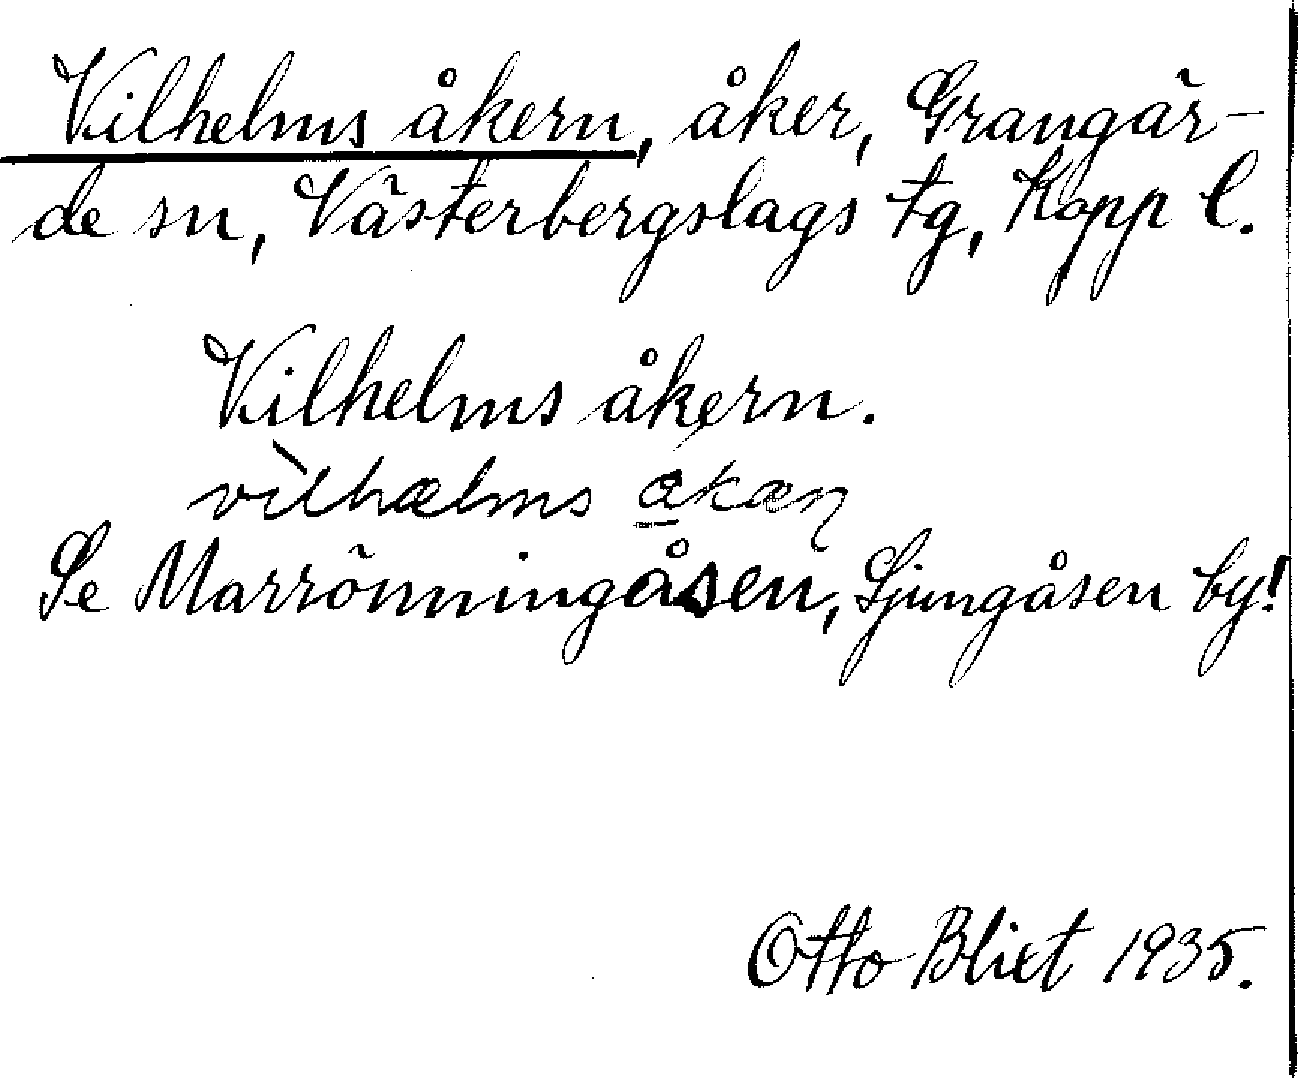 Vilhelms åkern, åker, Grangär-
de sn, Västerbergslags tg, Kopp l.
Vilhelms åkern.
vìlhælms åkæɳ
Se Marrönningåsen, Ljungåsen by!
Otto Blixt 1935.